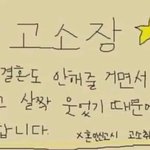 고소장
결혼도 안해줄 거면서
고 살짝 웃었기 때문에
합니다.
X혼인신고시 고소취